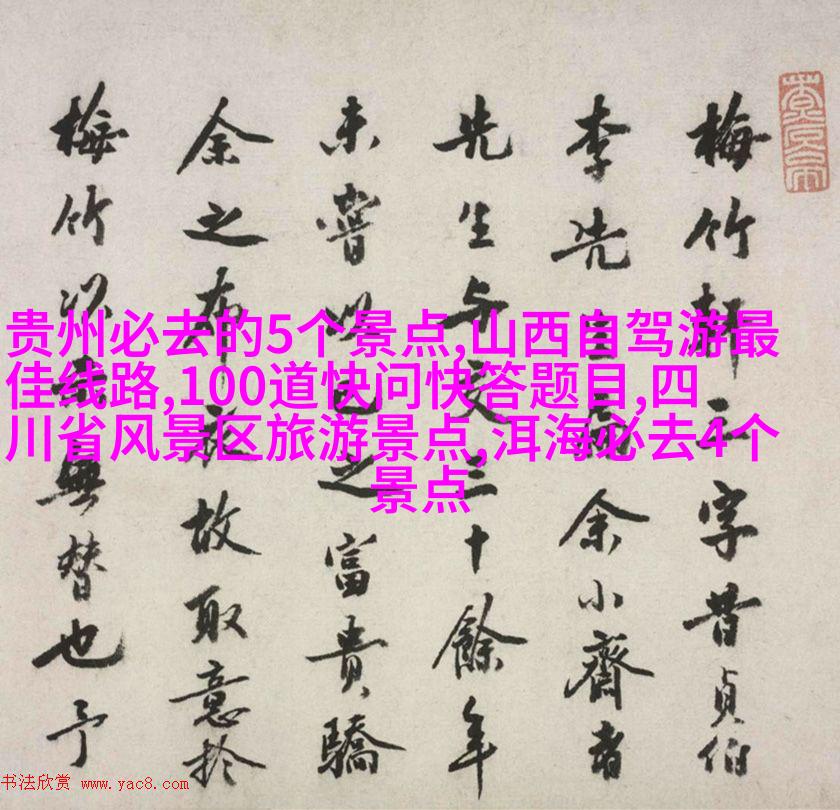 贵州必去的5个景点,山西自驾游最
佳线路,100道快问快答题目,四
川省风景区旅游景点,洱海必去4个
景点
梅竹軒三字昔貞伯
李先生為余小齋書
先生与交三十餘年
未嘗以己之富貴驕
余之布故取意於
梅竹無替也予
书法欣赏 www.yac8.com